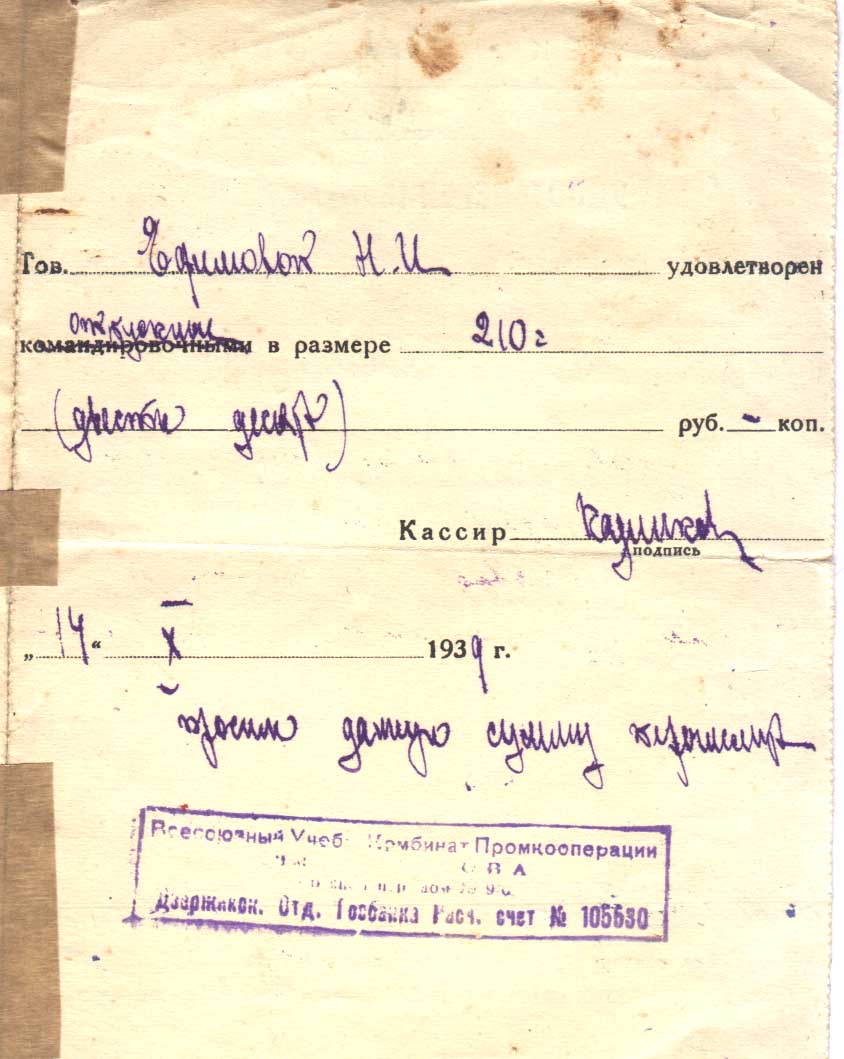 Тов. Ефимовой Н.И. удовлетворен
отпускными
командировочными в размере 210 г
(двести десять) руб. - коп.
Кассир
подпись
„14“ X 1939 г.
просим данную сумму перечислить
Всесоюзный Учеб. Комбинат Промкооперации
Дзержинск. Отд. Госбанка Расч. счет № 105630